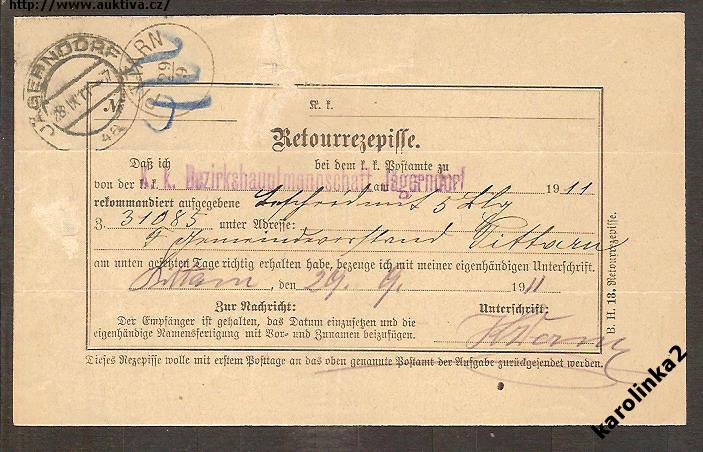 http://www.auktiva.cz/
JÄGERNDORF
28 IX 11 - 7
4a
PITTARN
29
9
Nr.
K. k.
Retourrezepisse.
Daß ich bei dem k. k. Postamte zu
von der k. k. K. k. Bezirkshauptmannschaft Jägerndorf am 1911
rekommandiert aufgegebene Bescheid mit 5 Blg
Z. 31085 unter Adresse:
Gemeindevorstand Pittarn
am unten gesetzten Tage richtig erhalten habe, bezeuge ich mit meiner eigenhändigen Unterschrift.
Pittarn, den 29. 9. 1911
Zur Nachricht: Unterschrift:
Der Empfänger ist gehalten, das Datum einzusetzen und die
eigenhändige Namensfertigung mit Vor- und Zunamen beizufügen.
Dieses Rezepisse wolle mit erstem Posttage an das oben genannte Postamt der Aufgabe zurückgesendet werden.
B. H. 13. Retourrezepisse.
karolinka2